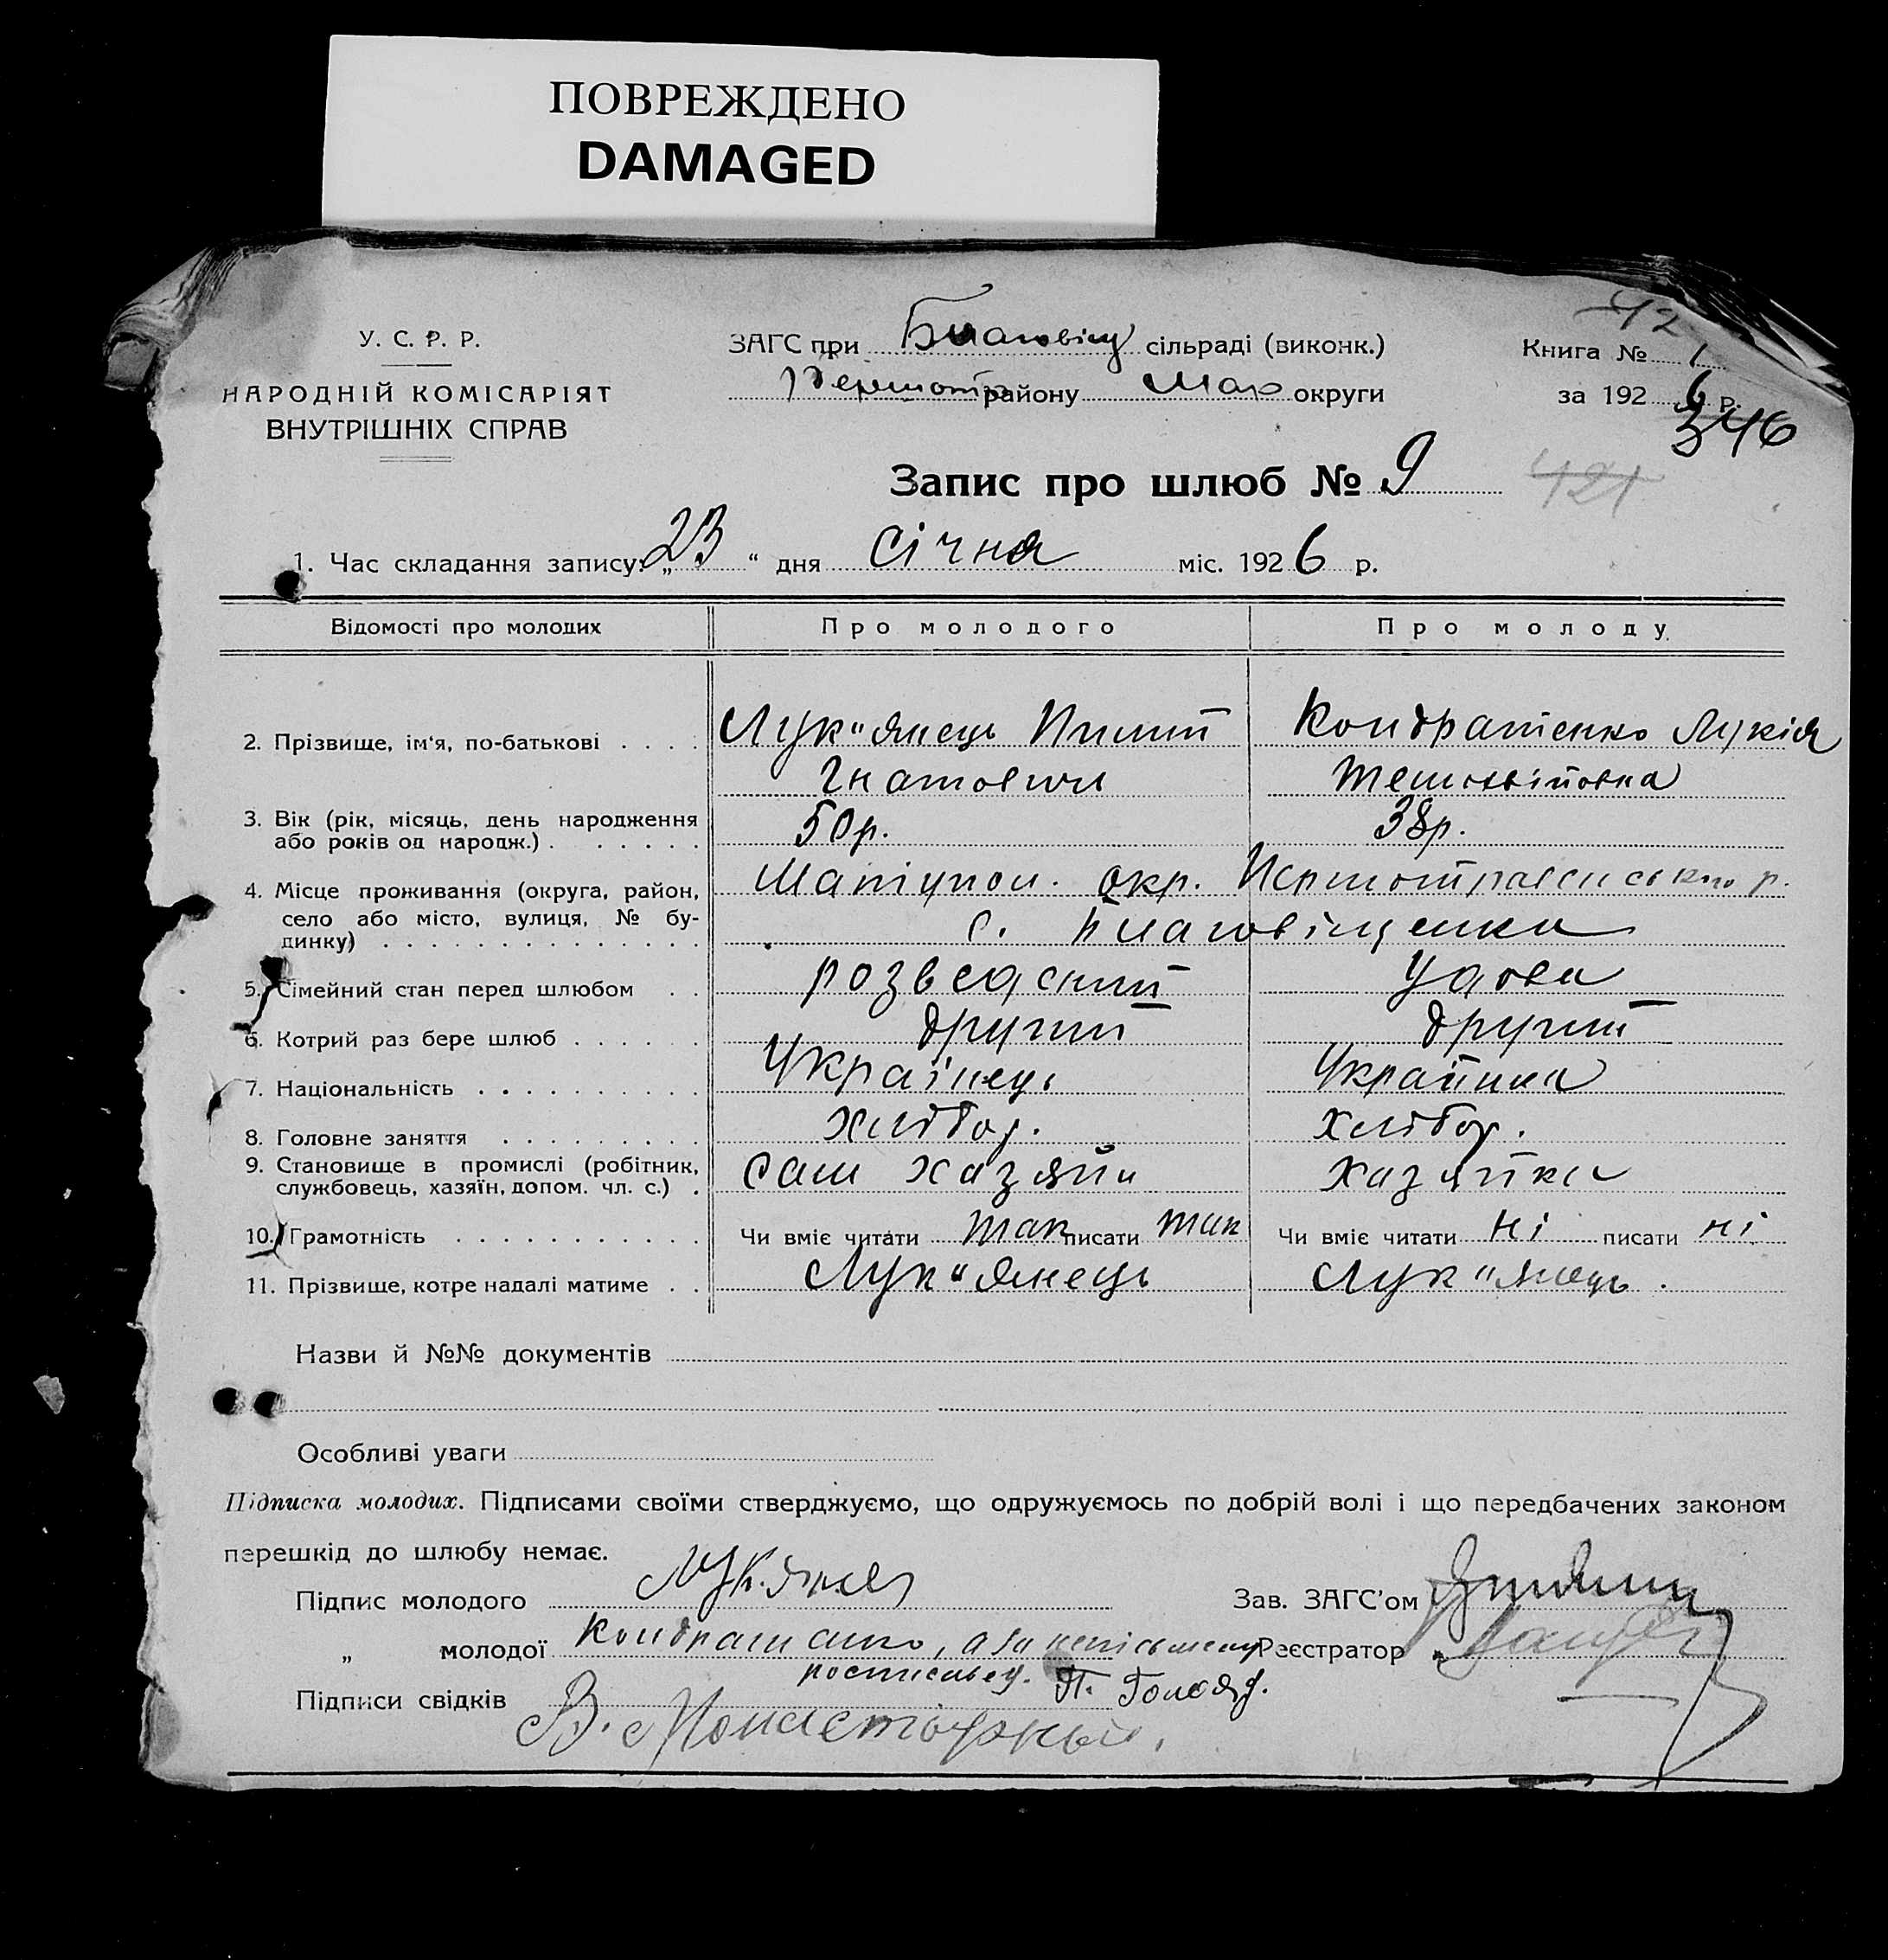 ПОВРЕЖДЕНО
DAMAGED
42
У. С. Р. Р.
НАРОДНІЙ КОМІСАРІЯТ
ВНУТРІШНІХ СПРАВ
ЗАГС при Благовіщ сільраді (виконк.)
району Мар округи
Книга № 1
за 1926 р.
346
Запис про шлюб № 9
421
1. Час складання запису: „23“ дня Січня міс. 1926 р.
Відомості про молодих Про молодого Про молоду
2. Прізвище, ім‘я, по-батькові . . . . Лук"янець Пилип Кондратенко Лукія
Гнатович
3. Вік (рік, місяць, день народження
або років од народж.) . . . . . . 50р. 38р.
4. Місце проживання (округа, район, Маріупол. окр. р.
село або місто, вулиця, № бу-
динку) . . . . . . . . . . . . . . с. Благовіщенка
5. Сімейний стан перед шлюбом . . розведений Удова
6. Котрий раз бере шлюб . . . . . . другий другий
7. Національність . . . . . . . . . . Українець Українка
8. Головне заняття . . . . . . . . . хлібор. хлібор.
9. Становище в промислі (робітник,
службовець, хазяїн, допом. чл. с.) . сам хазяйн хазяйка
10. Грамотність . . . . . . . . . . . Чи вміє читати так писати так Чи вміє читати ні писати ні
11. Прізвище, котре надалі матиме . . Лук"янець Лук"янець.
Назви й №№ документів
Особливі уваги
Підписка молодих. Підписами своїми стверджуємо, що одружуємось по добрій волі і що передбачених законом
перешкід до шлюбу немає.
Підпис молодого Зав. ЗАГС’ом
„ молодої Кондратенко, а за Реєстратор
П.
Підписи свідків
В.